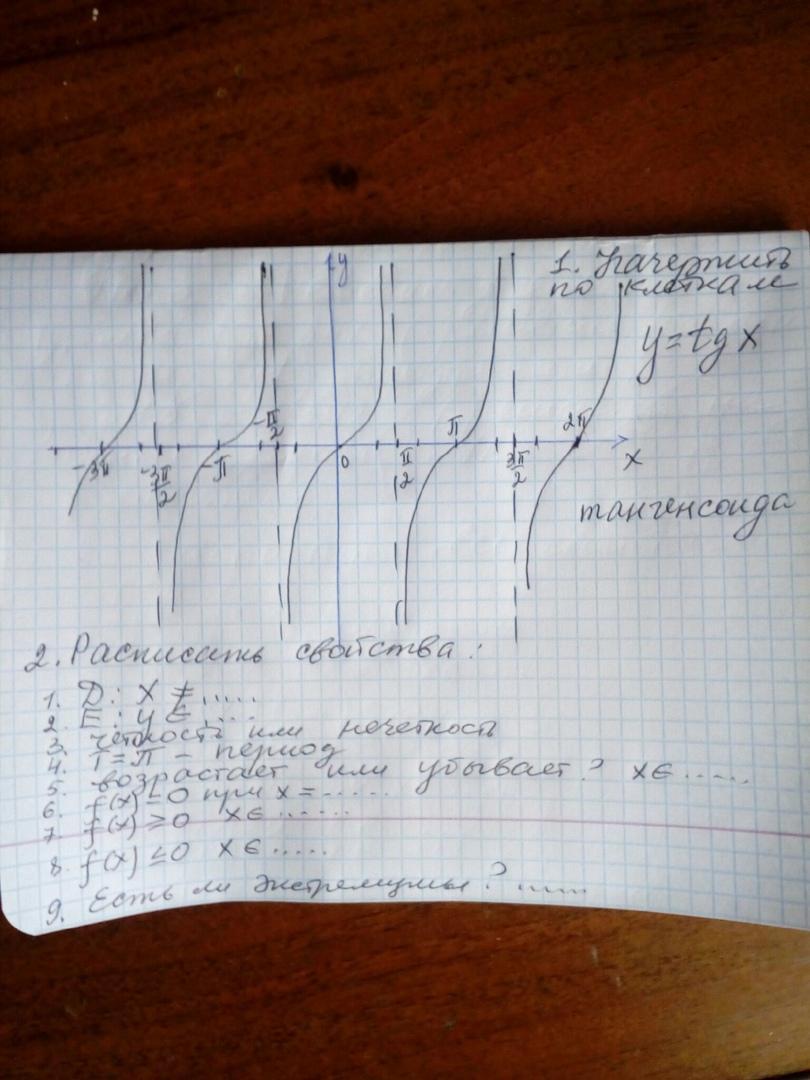 1. Начертить
по клеткам
y
y = tg x
-3π
-3π/2
-π
-π/2
0
π/2
π
3π/2
2π
x
тангенсоида
2. Расписать свойства:
1. D: x ≠ .....
2. E: y ∈ ....
3. чётность или нечетность
4. T = π - период
5. возрастает или убывает? x ∈ .....
6. f(x) = 0 при x = ......
7. f(x) ≥ 0 x ∈ ......
8. f(x) ≤ 0 x ∈ .....
9. Есть ли экстремумы? ......